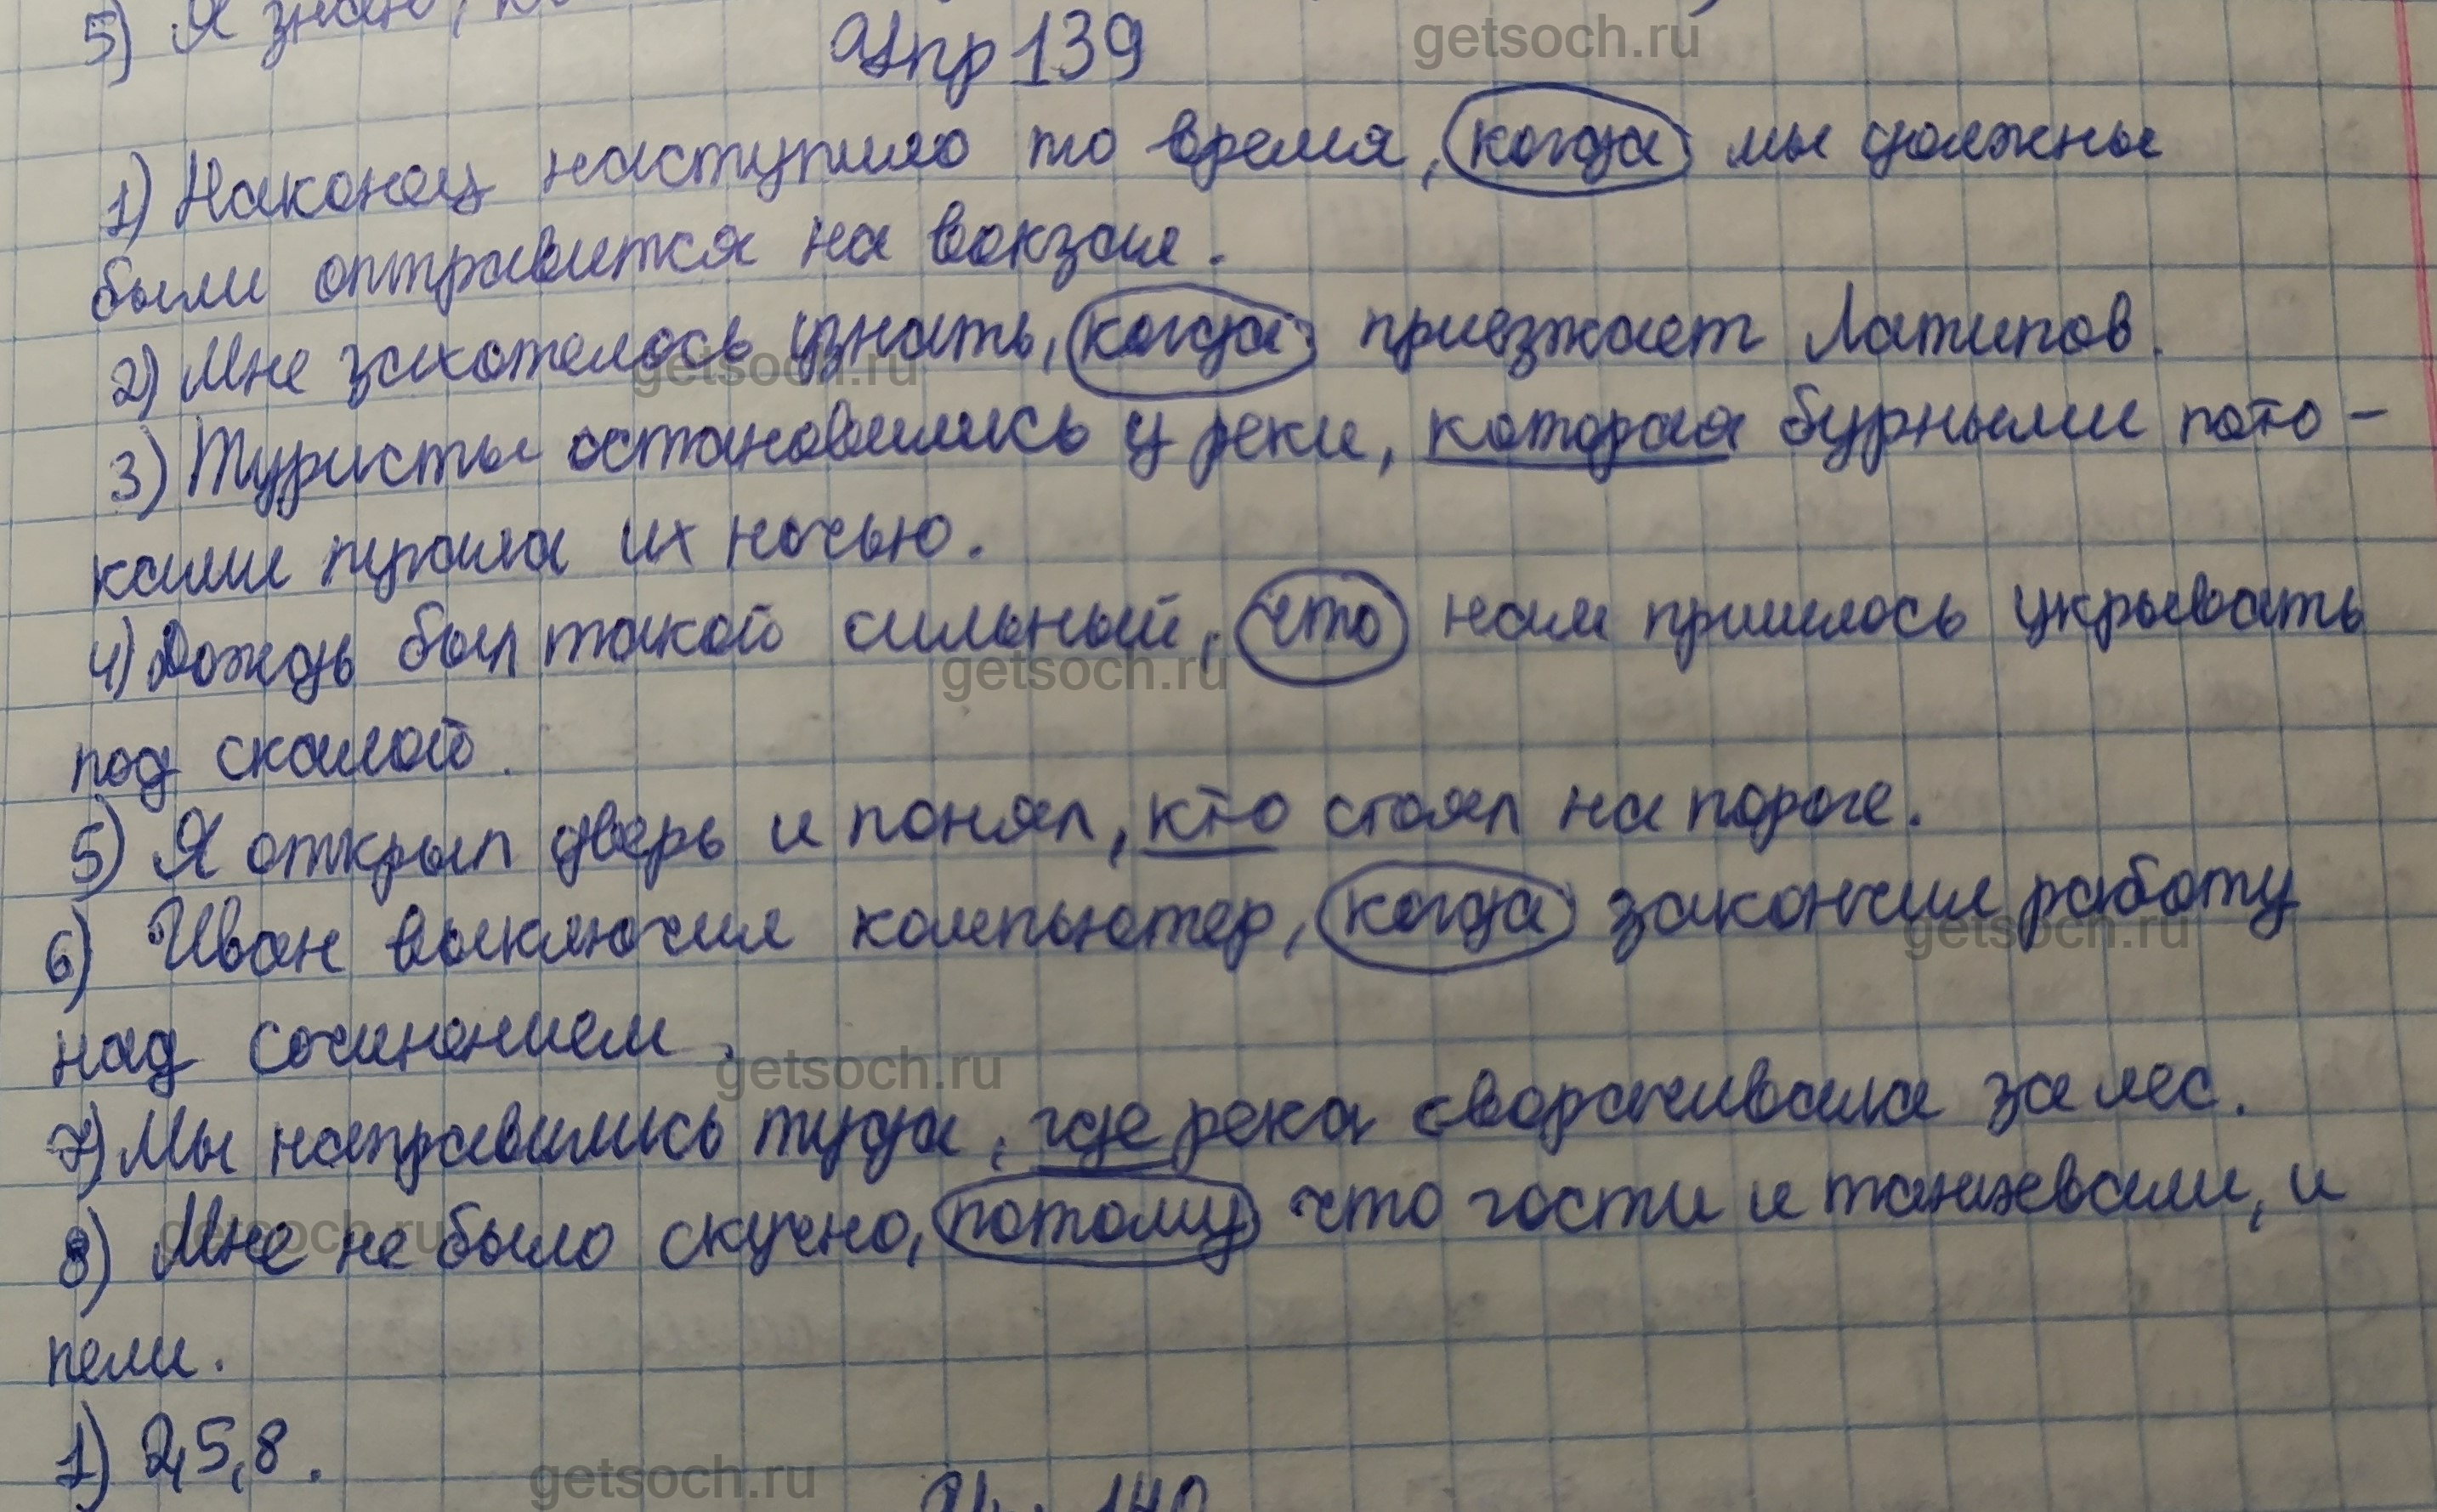 5) Я знаю,
Упр 139
1) Наконец наступило то время, когда мы должны
были отправится на вокзал.
2) Мне захотелось узнать, когда приезжает Латипов.
3) Туристы остановились у реки, которая бурными пото-
ками пугала их ночью.
4) Дождь был такой сильный, что нам пришлось укрывать
под скалой.
5) Я открыл дверь и понял, кто стоял на пороге.
6) Иван выключил компьютер, когда закончил работу
над сочинением.
7) Мы направились туда, где река сворачивала за лес.
8) Мне не было скучно, потому что гости и танцевали, и
пели.
1) 2,5,8.
Упр 140
getsoch.ru
getsoch.ru
getsoch.ru
getsoch.ru
getsoch.ru
getsoch.ru
getsoch.ru